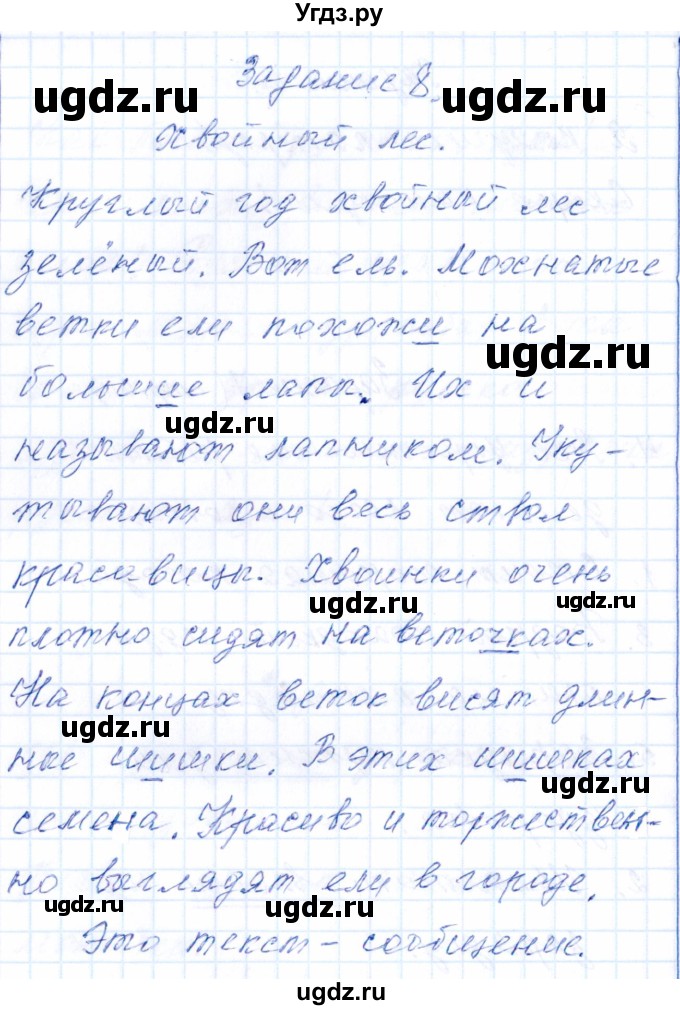 Угдз.ру
Задание 8.
Хвойный лес.
ugdz.ru ugdz.ru
Круглый год хвойный лес
зелёный. Вот ель. Мохнатые
ветки ели похожи на
ugdz.ru
большие лапы. Их и
ugdz.ru
называют лапником. Уку-
тывают они весь ствол
красавицы. Хвоинки очень
ugdz.ru ugdz.ru
плотно сидят на веточках.
На концах веток висят длин-
ugdz.ru
ные шишки. В этих шишках
ugdz.ru
семена. Красиво и торжествен-
но выглядят ели в городе.
ugdz.ru ugdz.ru
Это текст – сообщение.
ugdz.ru